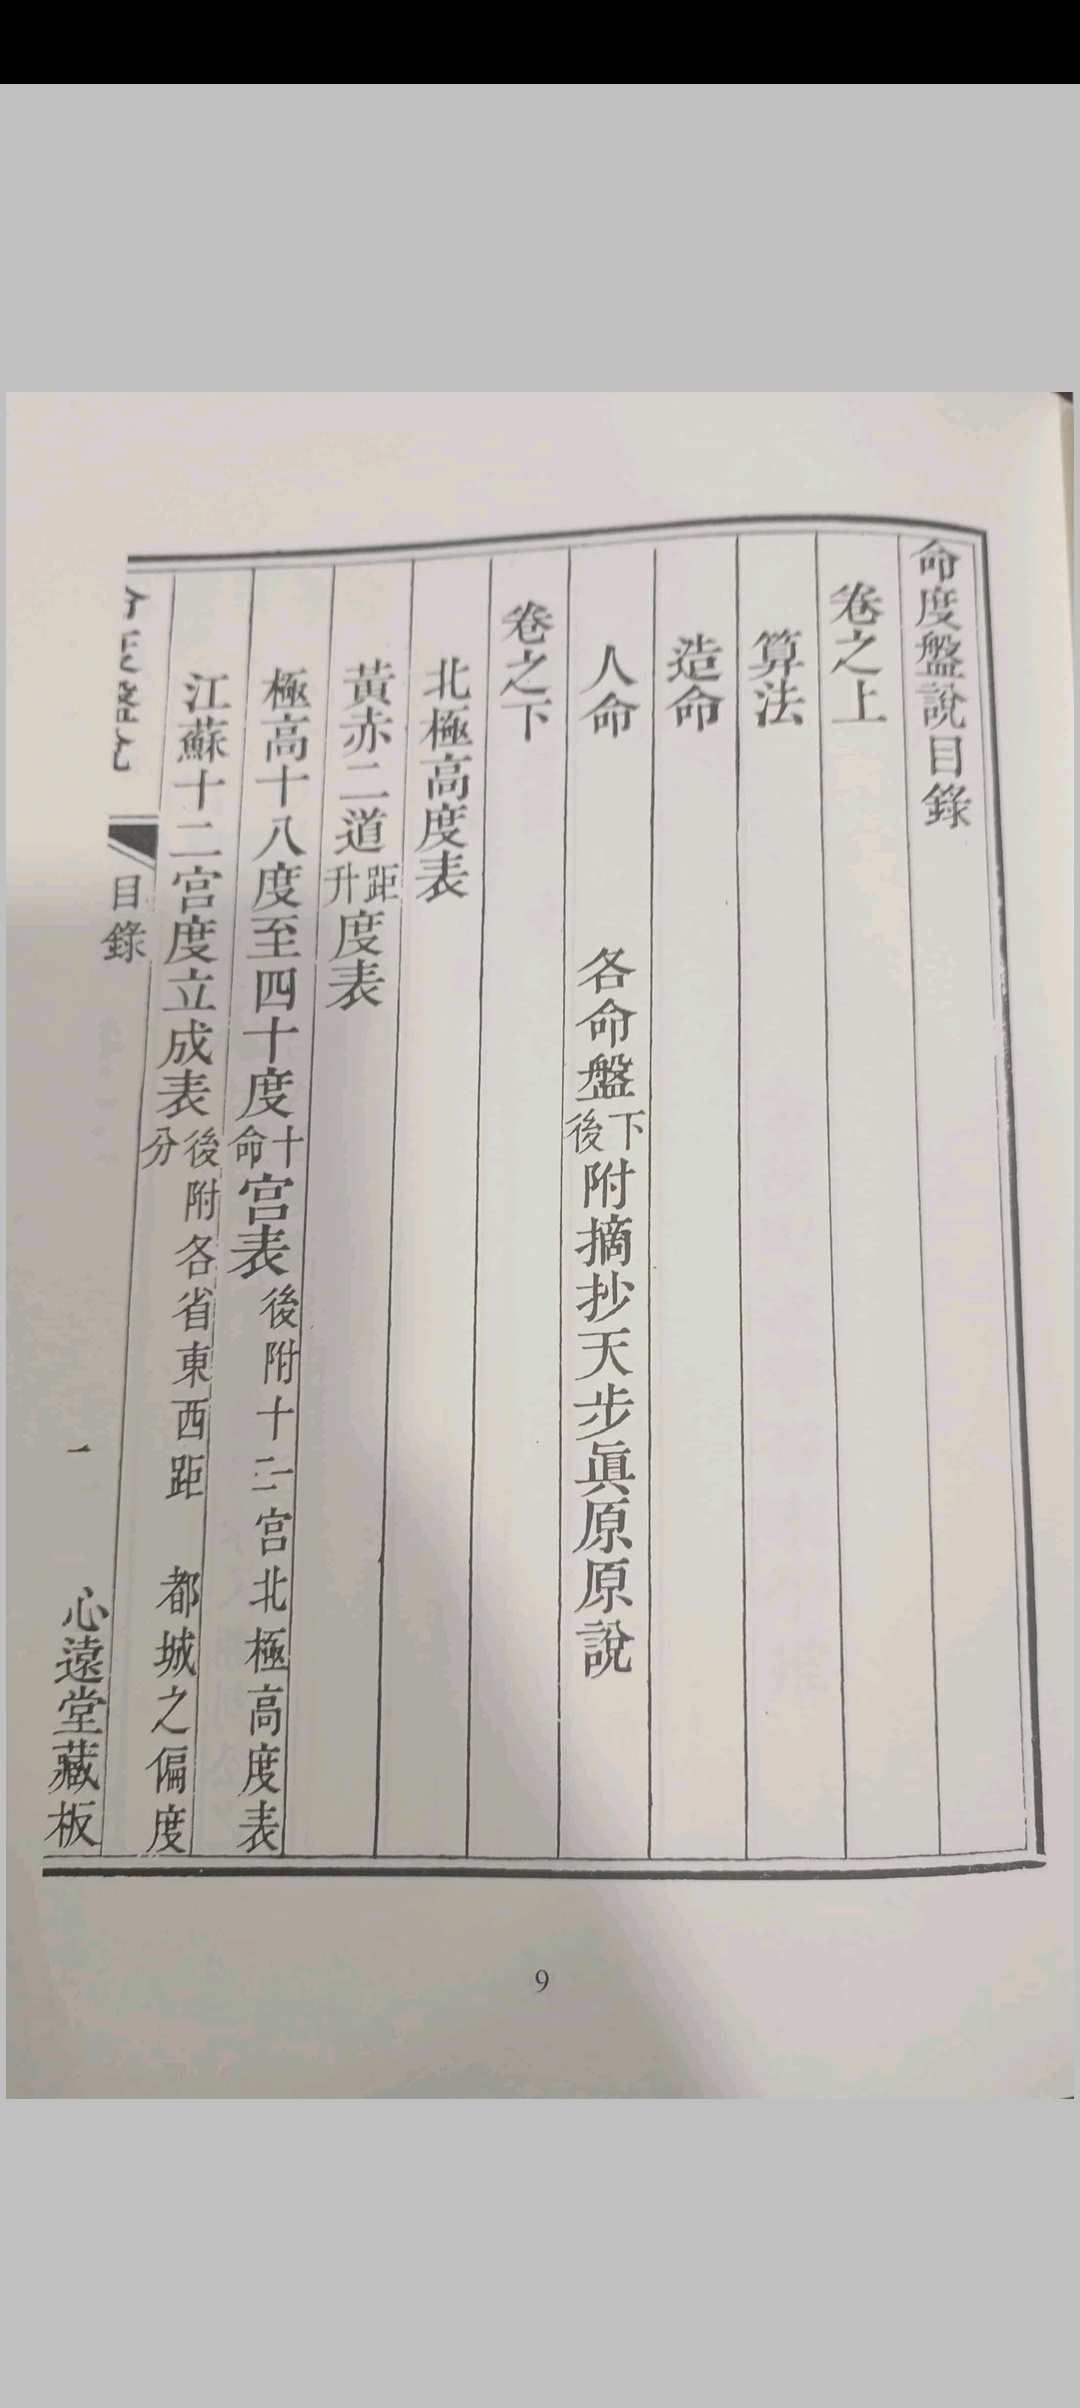 命度盤說目錄
卷之上
算法
造命
人命　各命盤下後附摘抄天步眞原原說
卷之下
北極高度表
黃赤二道距升度表
極高十八度至四十度十命宮表後附十二宮北極高度表
江蘇十二宮度立成表後分附各省東西距　都城之偏度
命度盤說　目錄　一　心遠堂藏板
9